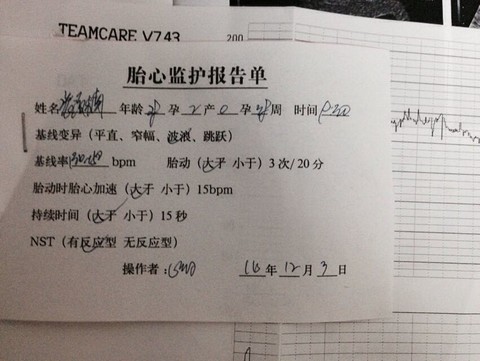 TEAMCARE V743
200
胎心监护报告单
姓名 年龄 孕 2 产 0 孕 周 时间
基线变异 (平直、窄幅、波浪、跳跃)
基线率 bpm 胎动 (大于 小于) 3 次/20 分
胎动时胎心加速 (大于 小于) 15bpm
持续时间 (大于 小于) 15 秒
NST (有反应型 无反应型)
操作者: 16 年 12 月 3 日